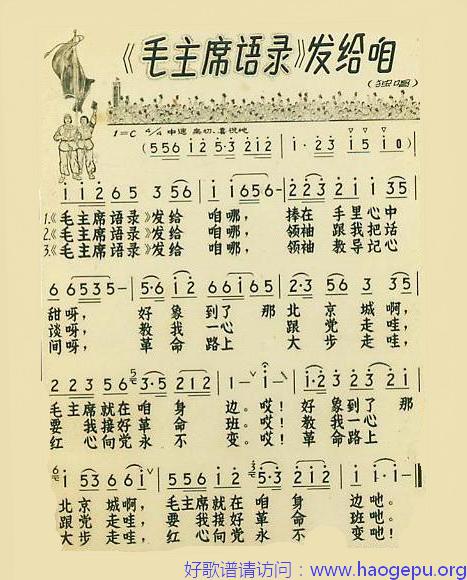 《毛主席语录》发给咱
(独唱)
1=C 4/4 中速 亲切、喜悦地
(5 5 6 1 2 5·3 2 1 2 | 1·2 3 1 5 1 0)
1 1 2 6 5 3 5 6 | 1 1 6 5 6 - | 2 2 3 2 1 2 1 3 5
1.《毛主席语录》发给 咱哪, 捧在 手里心中
2.《毛主席语录》发给 咱哪, 领袖 跟我把话
3.《毛主席语录》发给 咱哪, 领袖 教导记心
6 6 5 3 5 - | 5·6 1 2 6 6 1 6 5 | 2·3 5 6 3 5 -
甜呀, 好象到了那 北京城啊,
谈呀, 教我一心 跟党走哇,
间呀, 革命路上 大步走哇,
2 2 3 1 2 6 3·5 2 1 2 | 1 - 1 - | 1·2 3 2 3 2 1
毛主席就在咱身 边。哎! 好象到了那
要我接好革命 班。哎! 教我一心
红心向党永不 变。哎! 革命路上
1 3 5 6 6 1 | 5 5 6 1 2 3 2 1 2 | 1 - 1·1 -
北京城啊, 毛主席就在咱身 边吔。
跟党走哇, 要我接好革命 班吔。
大步走哇, 红心向党永不 变吔。
好歌谱请访问：www.haogepu.org